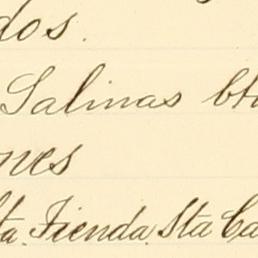 dos.
Salinas bta
nes
ta. Tienda. Sta Ca